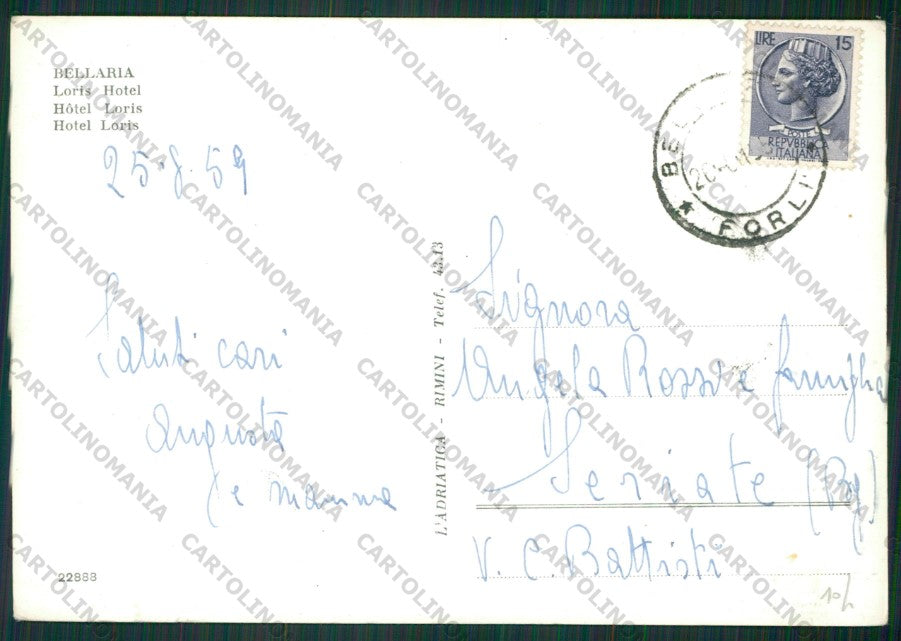 BELLARIA
Loris Hotel
Hôtel Loris
Hotel Loris
25.8.59
Saluti cari
Augusta
e mamma
22888
L'ADRIATICA - RIMINI - Telef. 43.13
LIRE 15
POSTE
REPVBBLICA
ITALIANA
FORLI
Signora
Angela Rossi e famiglia
Seriate (Bg)
V. C. Battisti
10/
CARTOLINOMANIA